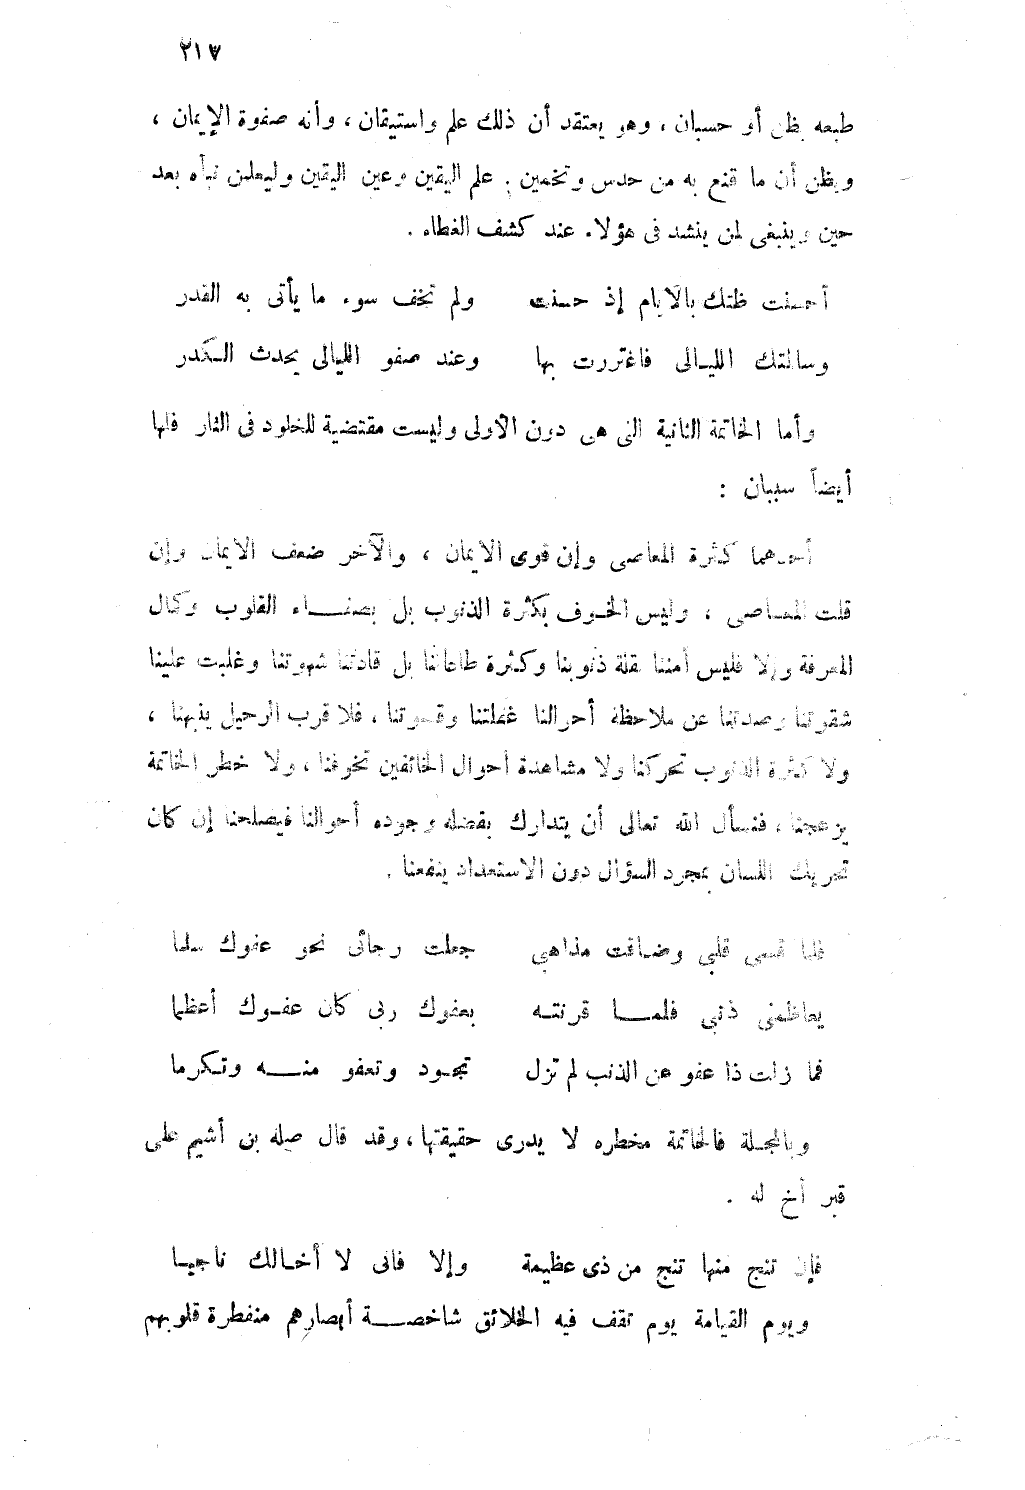 ٢١٧
طبعه بظن أو حسبان ، وهو يعتقد أن ذلك علم واستيقان ، وأنه صفوة الإيمان ،
ويظن أن ما قنع به من حدس وتخمين . علم اليقين وعين اليقين وليعلمن نبأه بعد
حين وينبغى لمن ينشد فى هؤلاء عند كشف الغطاء .
أحسنت ظنك بالأيام إذ حسنت ولم تخف سوء ما يأتى به القدر
وسالمتك الليالى فاغتررت بها وعند صفو الليالى يحدث الكدر
وأما الخاتمة الثانية التى هى دون الأولى وليست مقتضية للخلود فى النار فلها
أيضاً سببان :
أحدهما كثرة المعاصى وإن قوى الايمان ، والآخر ضعف الايمان وإن
قلت المعاصى ، وليس الخوف بكثرة الذنوب بل بصفاء القلوب وكمال
المعرفة وإلا فليس أمننا بقلة ذنوبنا وكثرة طاعاتنا بل قادتنا شهوتنا وغلبت علينا
شقوتنا وصدتنا عن ملاحظة أحوالنا غفلتنا وقسوتنا ، فلا قرب الرحيل ينبهنا ،
ولا كثرة الذنوب تحركنا ولا مشاهدة أحوال الخائفين تخوفنا ، ولا خطر الخاتمة
يزعجنا ، فنسأل الله تعالى أن يتدارك بفضله وجوده أحوالنا فيصلحنا إن كان
تحريك اللسان بمجرد السؤال دون الاستعداد ينفعنا .
فلما قسى قلبى وضاقت مذاهبى جعلت رجائى نحو عفوك سلما
يعاظمنى ذنبى فلما قرنته بعفوك ربى كان عفوك أعظما
فما زلت ذا عفو عن الذنب لم تزل تجود وتعفو منه وتكرما
وبالجملة فالخاتمة مخطره لا يدرى حقيقتها ، وقد قال صله بن أشيم على
قبر أخ له .
فإن تنج منها تنج من ذى عظيمة وإلا فانى لا أخالك ناجيا
ويوم القيامة يوم تقف فيه الخلائق شاخصة أبصارهم منفطرة قلوبهم